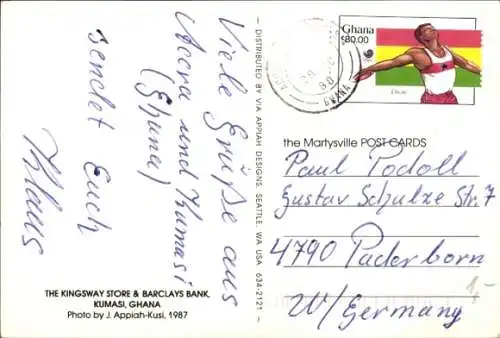 Viele Grüße aus
Accra und Kumasi
(Ghana)
sendet Euch
Klaus
THE KINGSWAY STORE & BARCLAYS BANK,
KUMASI, GHANA
Photo by J. Appiah-Kusi, 1987
DISTRIBUTED BY VIA APPIAH DESIGNS, SEATTLE, WA USA 634-2121
Ghana
¢80.00
GHANA
the Martysville POST CARDS
Paul Podoll
Gustav Schulze Str. 7
4790 Paderborn
W/Germany
1,-